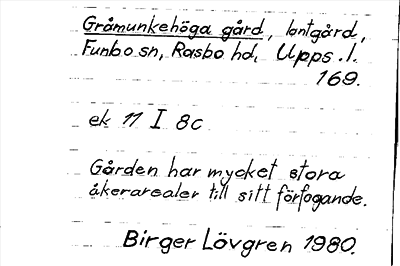 Gråmunkehöga gård, lantgård,
Funbo sn, Rasbo hd, Upps. l.
169.
ek 11 I 8c
Gården har mycket stora
åkerarealer till sitt förfogande.
Birger Lövgren 1980.